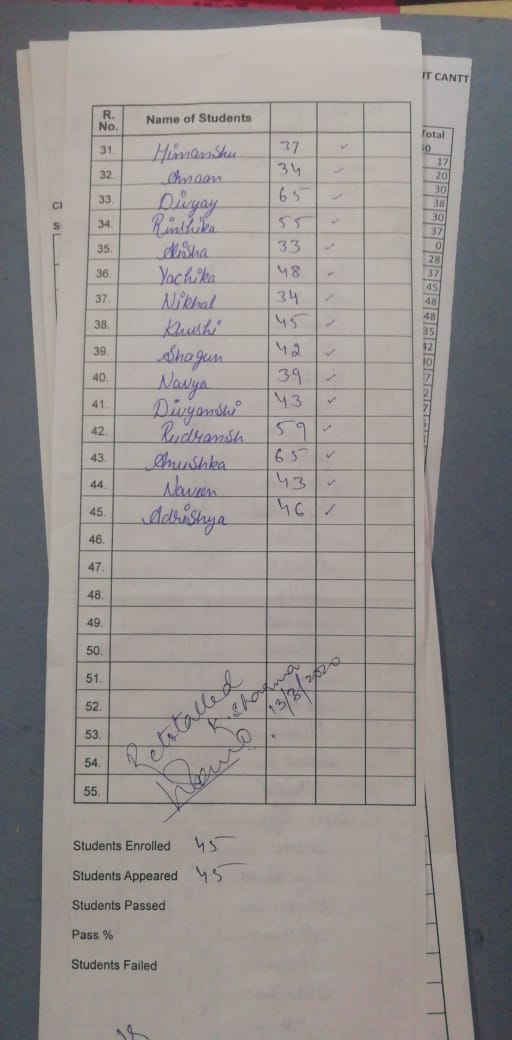 UT CANTT
R. No. Name of Students
Total
31. Himanshu 37 ✓
17
32. Amaan 34 ✓
20
33. Divyay 65 ✓
30
38
34. Rinshika 55 ✓
30
37
35. Alisha 33 ✓
0
28
36. Yachika 48 ✓
37
45
37. Nikhal 34 ✓
48
38. Khushi 45 ✓
48
35
39. Shagun 42 ✓
42
40. Navya 39 ✓
41. Divyanshi 43 ✓
42. Rudransh 59 ✓
43. Anushka 65 ✓
44. Naveen 43 ✓
45. Adrishya 46 ✓
46.
47.
48.
49.
50.
51.
52.
53.
54.
55.
Retotalled
K. Sharma
13/3/2020
Students Enrolled 45
Students Appeared 45
Students Passed
Pass %
Students Failed